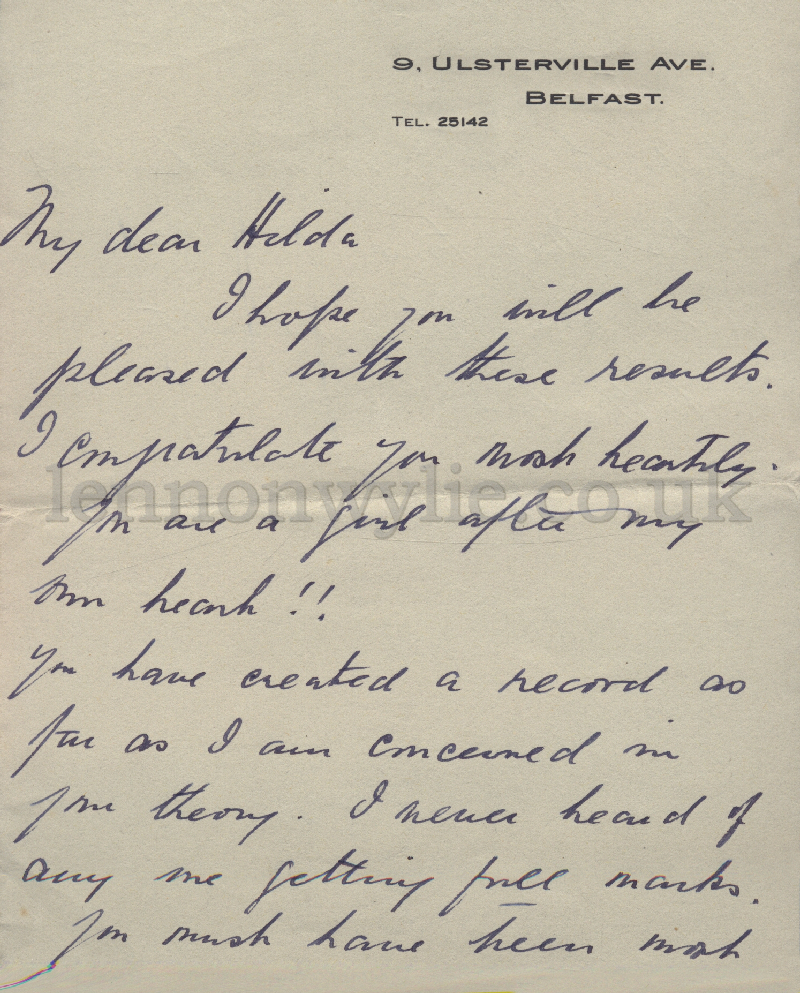 9, ULSTERVILLE AVE.
BELFAST.
TEL. 25142
My dear Hilda
I hope you will be
pleased with these results.
I congratulate you most heartily.
lennonwylie.co.uk
You are a girl after my
own heart!!
You have created a record as
far as I am concerned in
your theory. I never heard of
any one getting full marks.
You must have been most